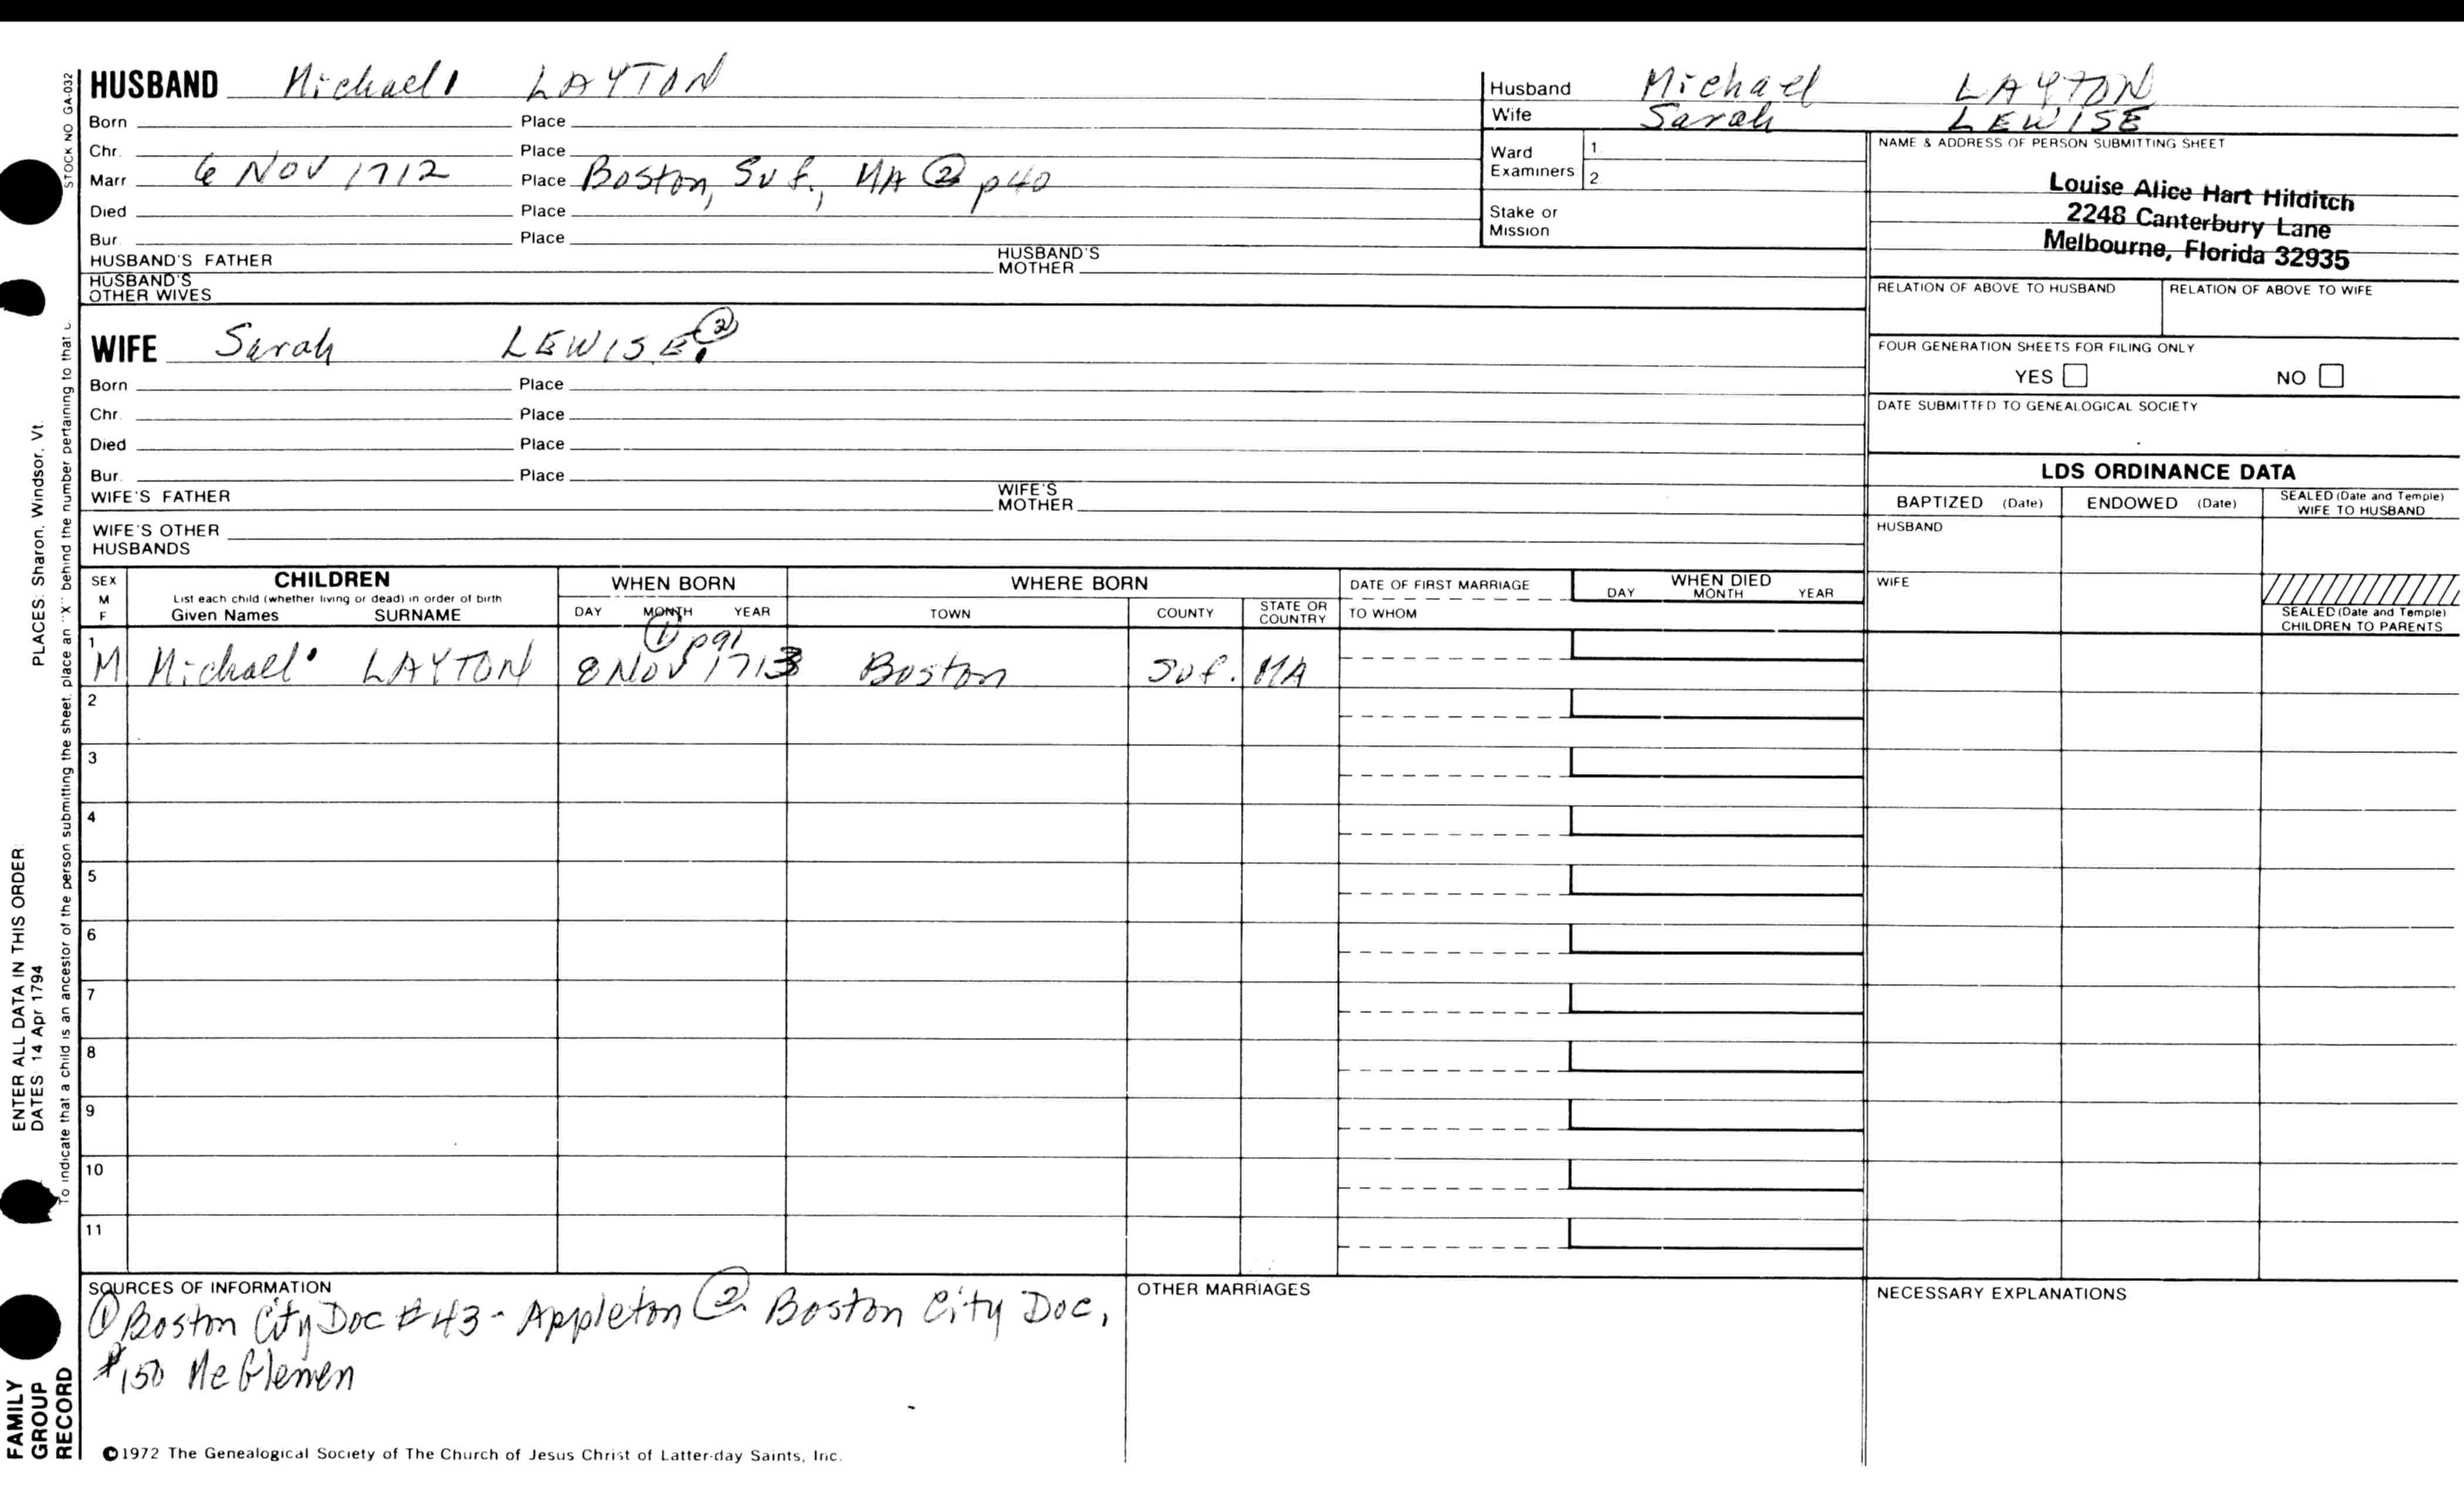 STOCK NO GA-032
HUSBAND Michael LAYTON
Born Place
Chr. Place
Marr 6 NOV 1712 Place Boston, Suf., MA ② p40
Died Place
Bur. Place
HUSBAND'S FATHER HUSBAND'S MOTHER
HUSBAND'S OTHER WIVES
WIFE Sarah LEWISE ②
Born Place
Chr. Place
Died Place
Bur. Place
WIFE'S FATHER WIFE'S MOTHER
WIFE'S OTHER HUSBANDS
Husband Michael LAYTON
Wife Sarah LEWISE
Ward Examiners 1. 2.
Stake or Mission
NAME & ADDRESS OF PERSON SUBMITTING SHEET
Louise Alice Hart Hilditch
2248 Canterbury Lane
Melbourne, Florida 32935
RELATION OF ABOVE TO HUSBAND RELATION OF ABOVE TO WIFE
FOUR GENERATION SHEETS FOR FILING ONLY
YES NO
DATE SUBMITTED TO GENEALOGICAL SOCIETY
LDS ORDINANCE DATA
BAPTIZED (Date) ENDOWED (Date) SEALED (Date and Temple) WIFE TO HUSBAND
HUSBAND
WIFE
SEALED (Date and Temple) CHILDREN TO PARENTS
SEX M F CHILDREN WHEN BORN WHERE BORN DATE OF FIRST MARRIAGE WHEN DIED
List each child (whether living or dead) in order of birth
Given Names SURNAME DAY MONTH YEAR TOWN COUNTY STATE OR COUNTRY TO WHOM DAY MONTH YEAR
① p91
1 M Michael LAYTON 8 Nov 1713 Boston Suf. MA
2
3
4
5
6
7
8
9
10
11
SOURCES OF INFORMATION
① Boston City Doc #43 - Appleton ② Boston City Doc,
#150 McGlenen
OTHER MARRIAGES
NECESSARY EXPLANATIONS
©1972 The Genealogical Society of The Church of Jesus Christ of Latter-day Saints, Inc.
ENTER ALL DATA IN THIS ORDER:
DATES: 14 Apr 1794 PLACES: Sharon, Windsor, Vt.
To indicate that a child is an ancestor of the person submitting the sheet, place an "X" behind the number pertaining to that
FAMILY
GROUP
RECORD